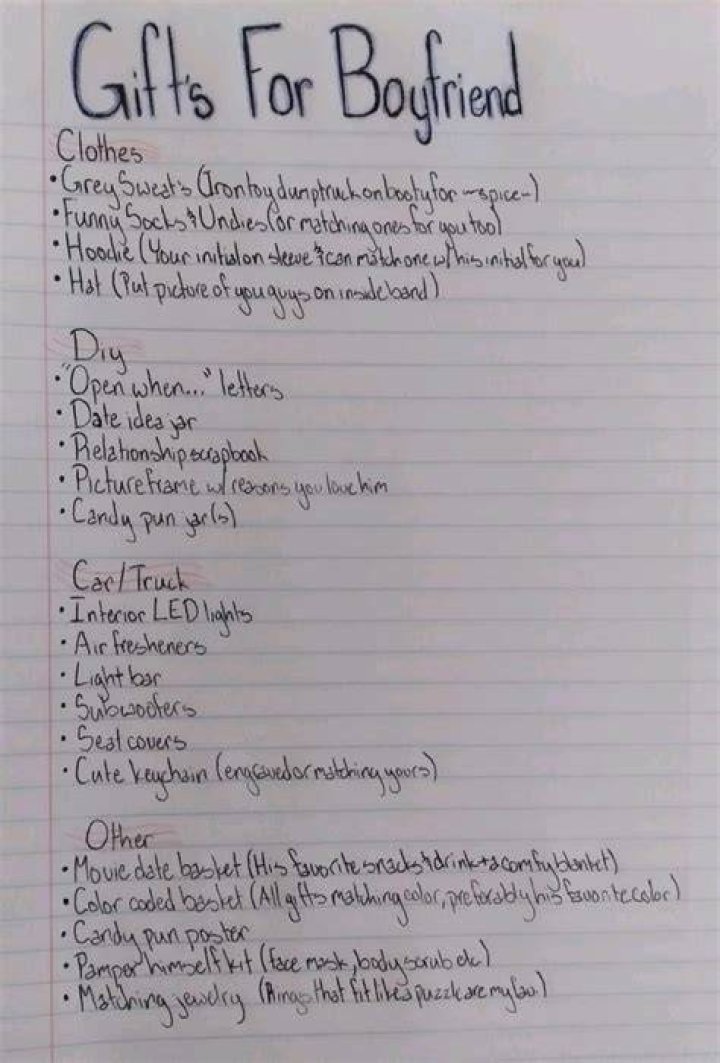 Gift's For Boyfriend
Clothes
• Grey Sweat's (Iron toy dumptruck on booty for ~spice~)
• Funny Socks & Undies (or matching ones for you too)
• Hoodie (Your initial on sleeve & can match one w/ his initial for you)
• Hat (Put picture of you guys on inside band)
Diy
• "Open when..." letters
• Date idea jar
• Relationship scrapbook
• Picture frame w/ reasons you love him
• Candy pun jar(s)
Car/Truck
• Interior LED lights
• Air fresheners
• Light bar
• Subwoofers
• Seat covers
• Cute keychain (engraved or matching yours)
Other
• Movie date basket (His favorite snacks & drink + a comfy blanket)
• Color coded basket (All gifts matching color, preferably his favorite color)
• Candy pun poster
• Pamper himself kit (face mask, body scrub etc)
• Matching jewelry (Rings that fit like a puzzle are my fav.)